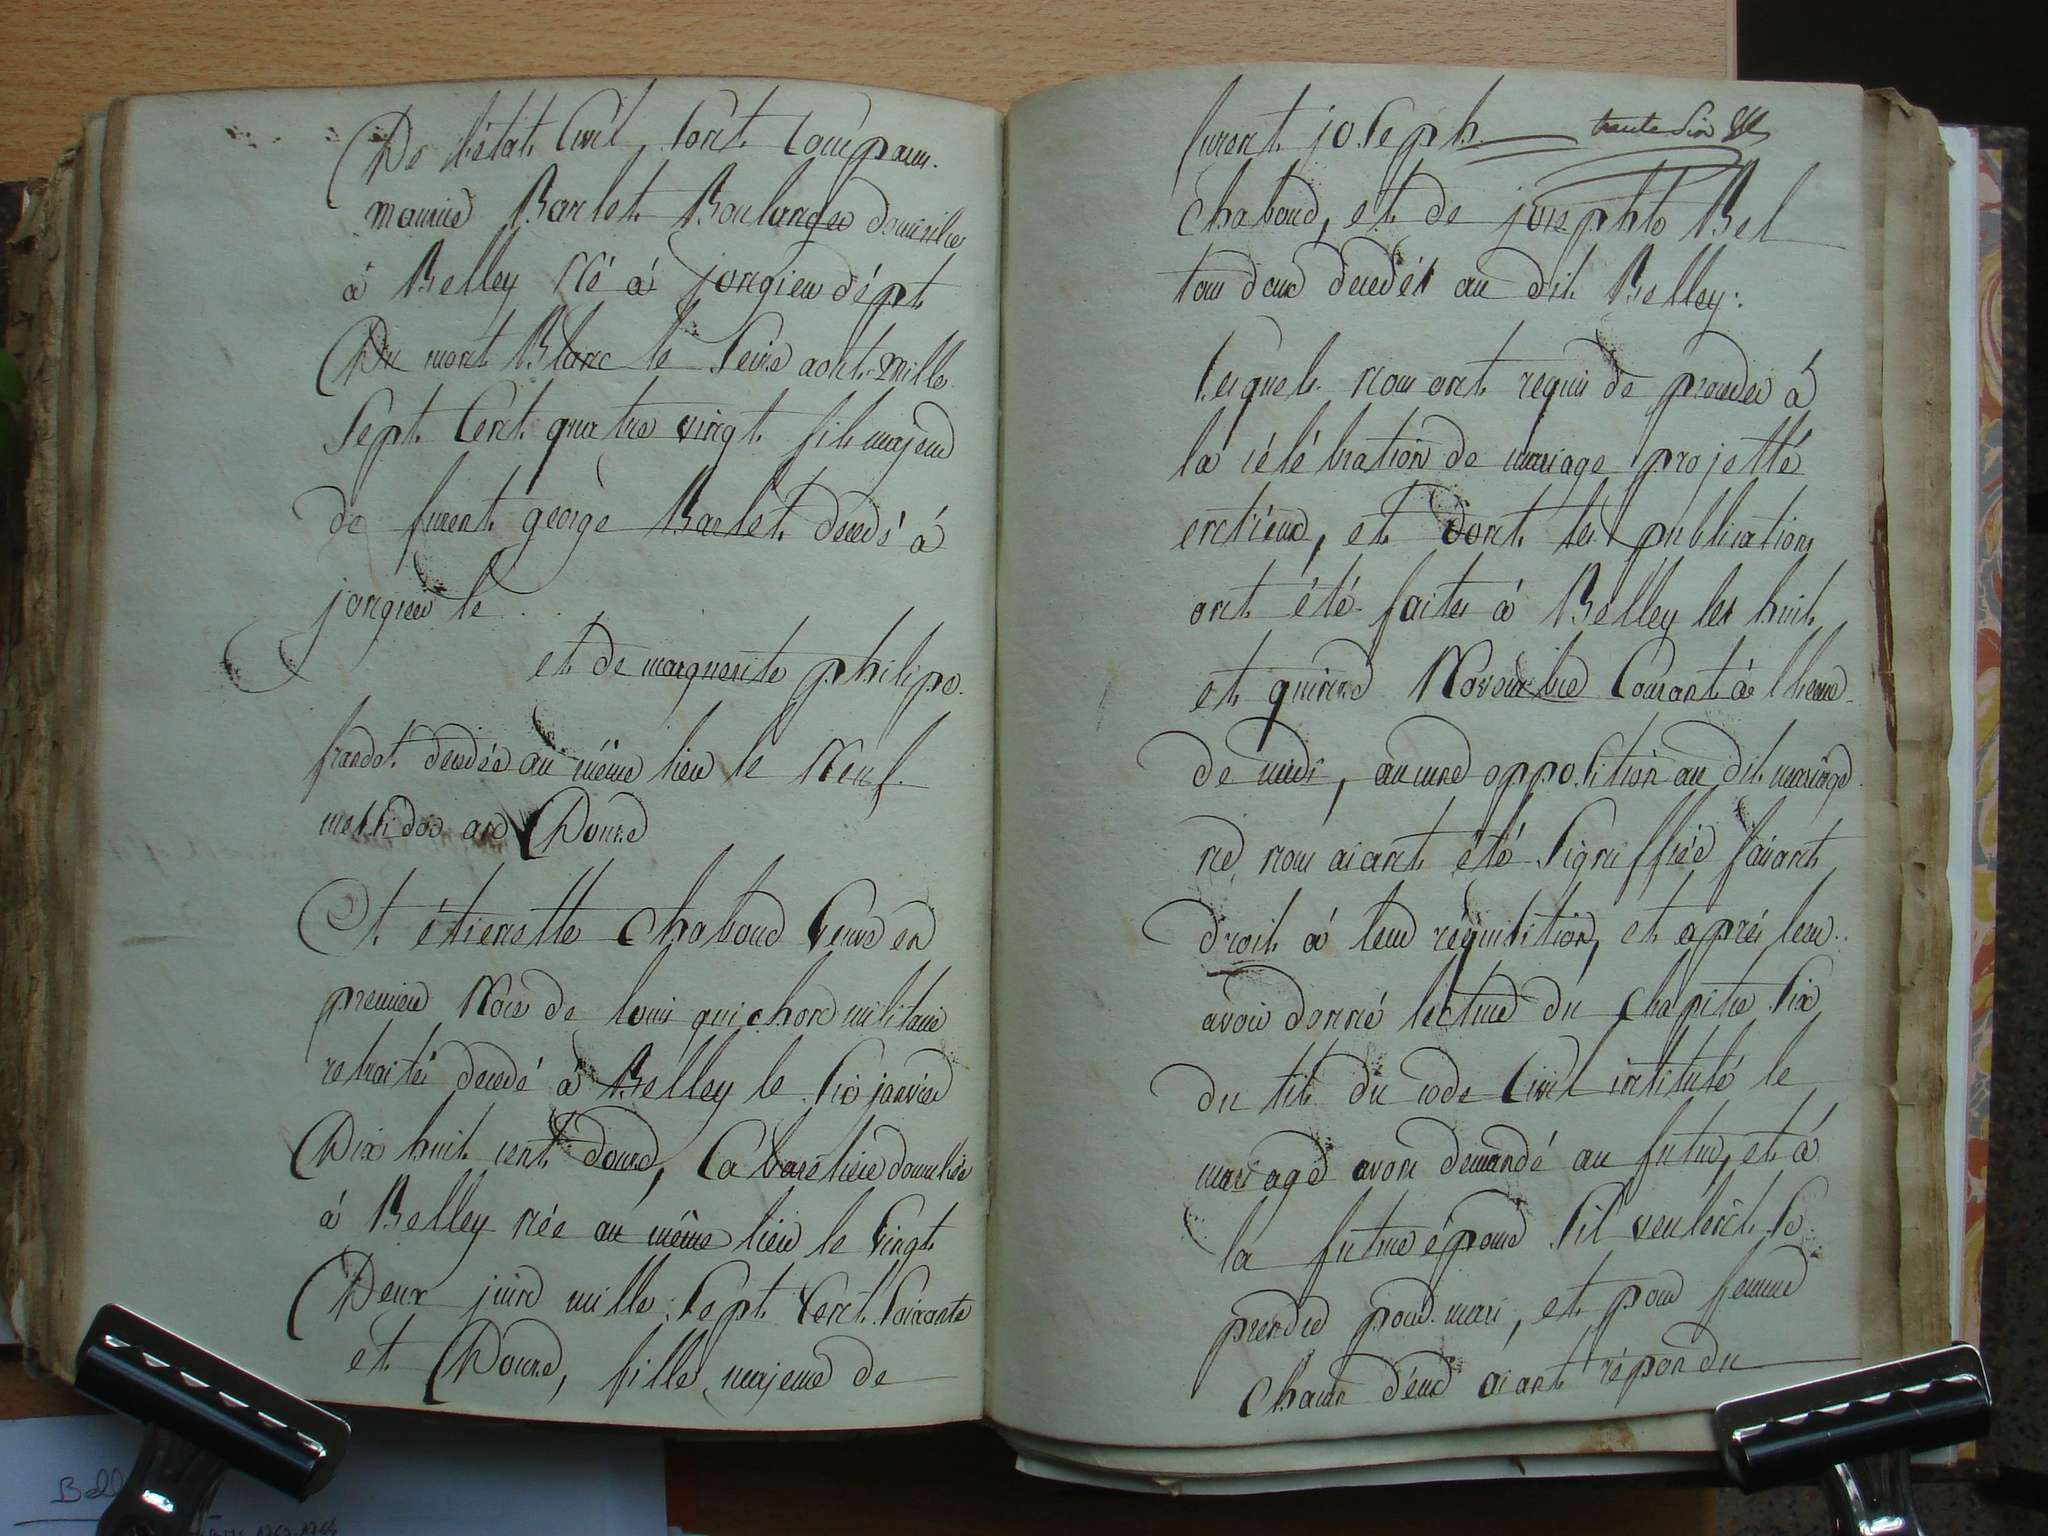 De l'état Civil sont Comparus
maurice Barlet Boulanger domicilié
à Belley Né à jongieu dépt
Du mont Blanc le Seize aout mille
Sept Cent quatre vingt fils majeur
de furent george Barlet décedé à
jongieu le
et de marguerite philipe
frandot decedée au même lieu le Neuf
messidor an Douze
Et étienette Chaboud Veuve en
premiere Noce de louis guichon militaire
retraité decedé à Belley le Six janvier
Dix huit cent douze, Cabaretière domiciliée
à Belley née au même lieu le Vingt
Deux juin mille Sept Cent Soixante
et Douze, fille majeure de
trente six
furent joseph
Chaboud, et de josephte Bel
tous deux decedés au dit Belley.
lesquels nous ont requis de proceder à
la célébration de mariage projetté
entr'eux, et dont les publications
ont été faites à Belley les huit
et quinze Novembre Courant à l'heure
de midi, aucune opposition au dit mariage
ne nous aiant été Signiffiée faisant
droit à leur réquisition, et après leur
avoir donné lecture du Chapitre Six
du tit du code Civil intitulé le
mariage avons demandé au futur, et à
la future épouse S'il veulent Se
prendre pour mari, et pour femme
Chacun d'eux aiant répondu
Bell